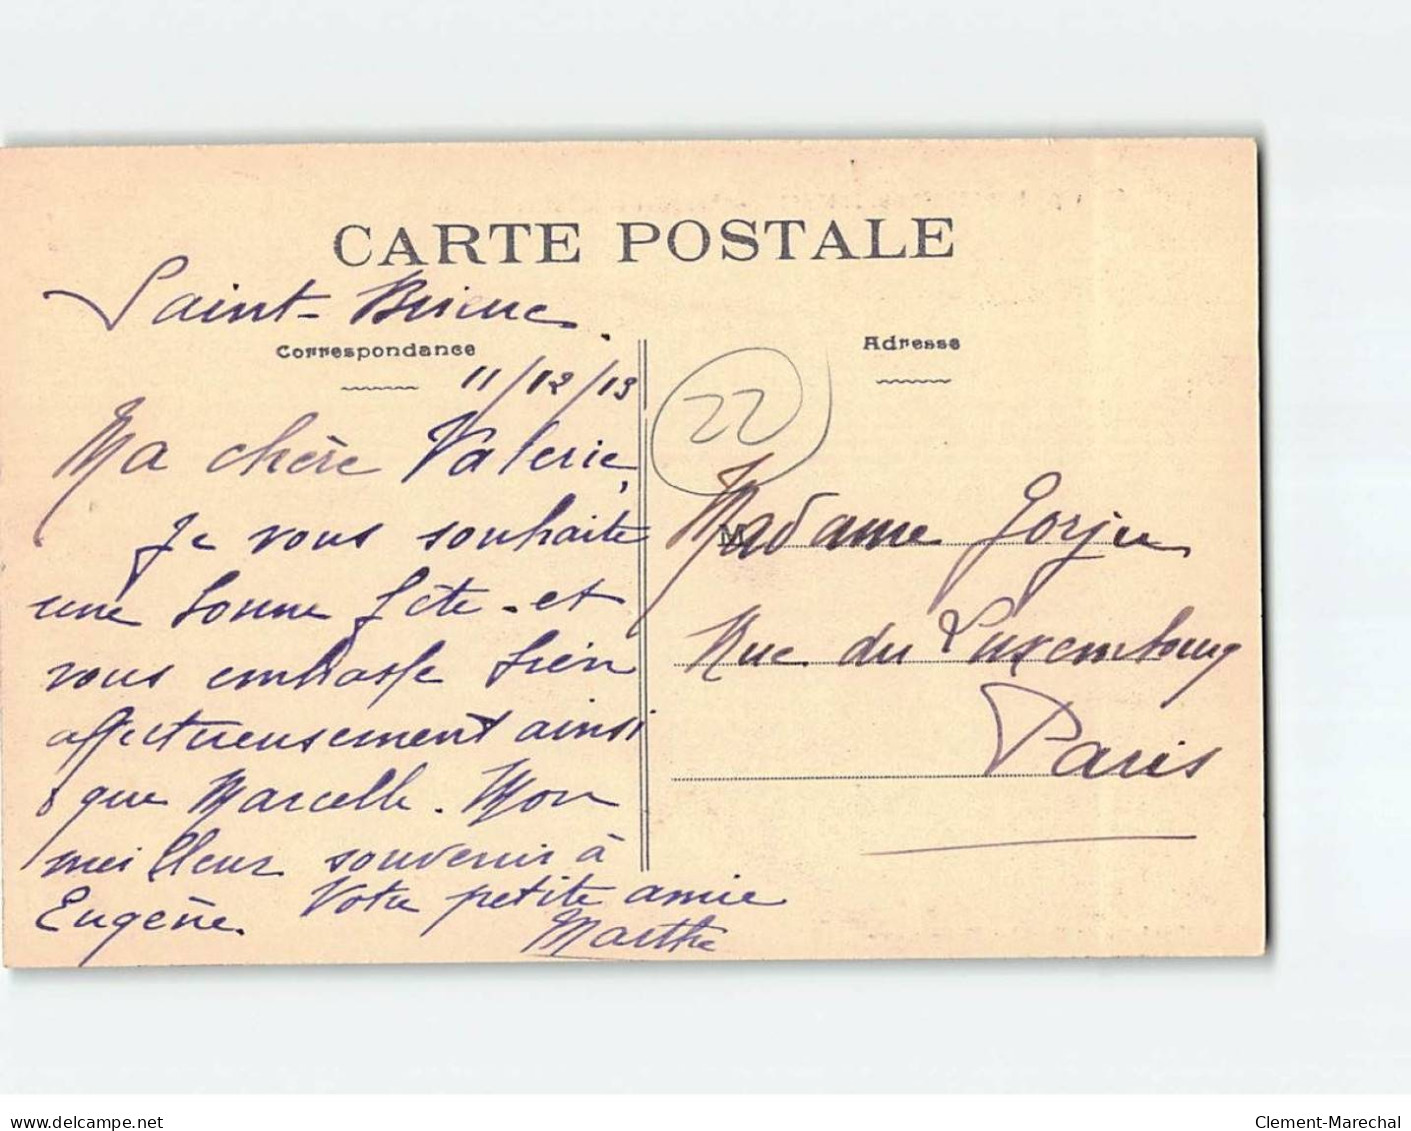 CARTE POSTALE
Saint-Brieuc
Correspondance
11/12/13
Ma chère Valerie,
Je vous souhaite
une bonne fête - et
vous embrasse bien
affectueusement ainsi
que Marcelle. Mon
meilleur souvenir à
Eugène. Votre petite amie
Marthe
Adresse
22
M
Madame Gorju
Rue du Luxembourg
Paris
delcampe.net
Clement-Marechal